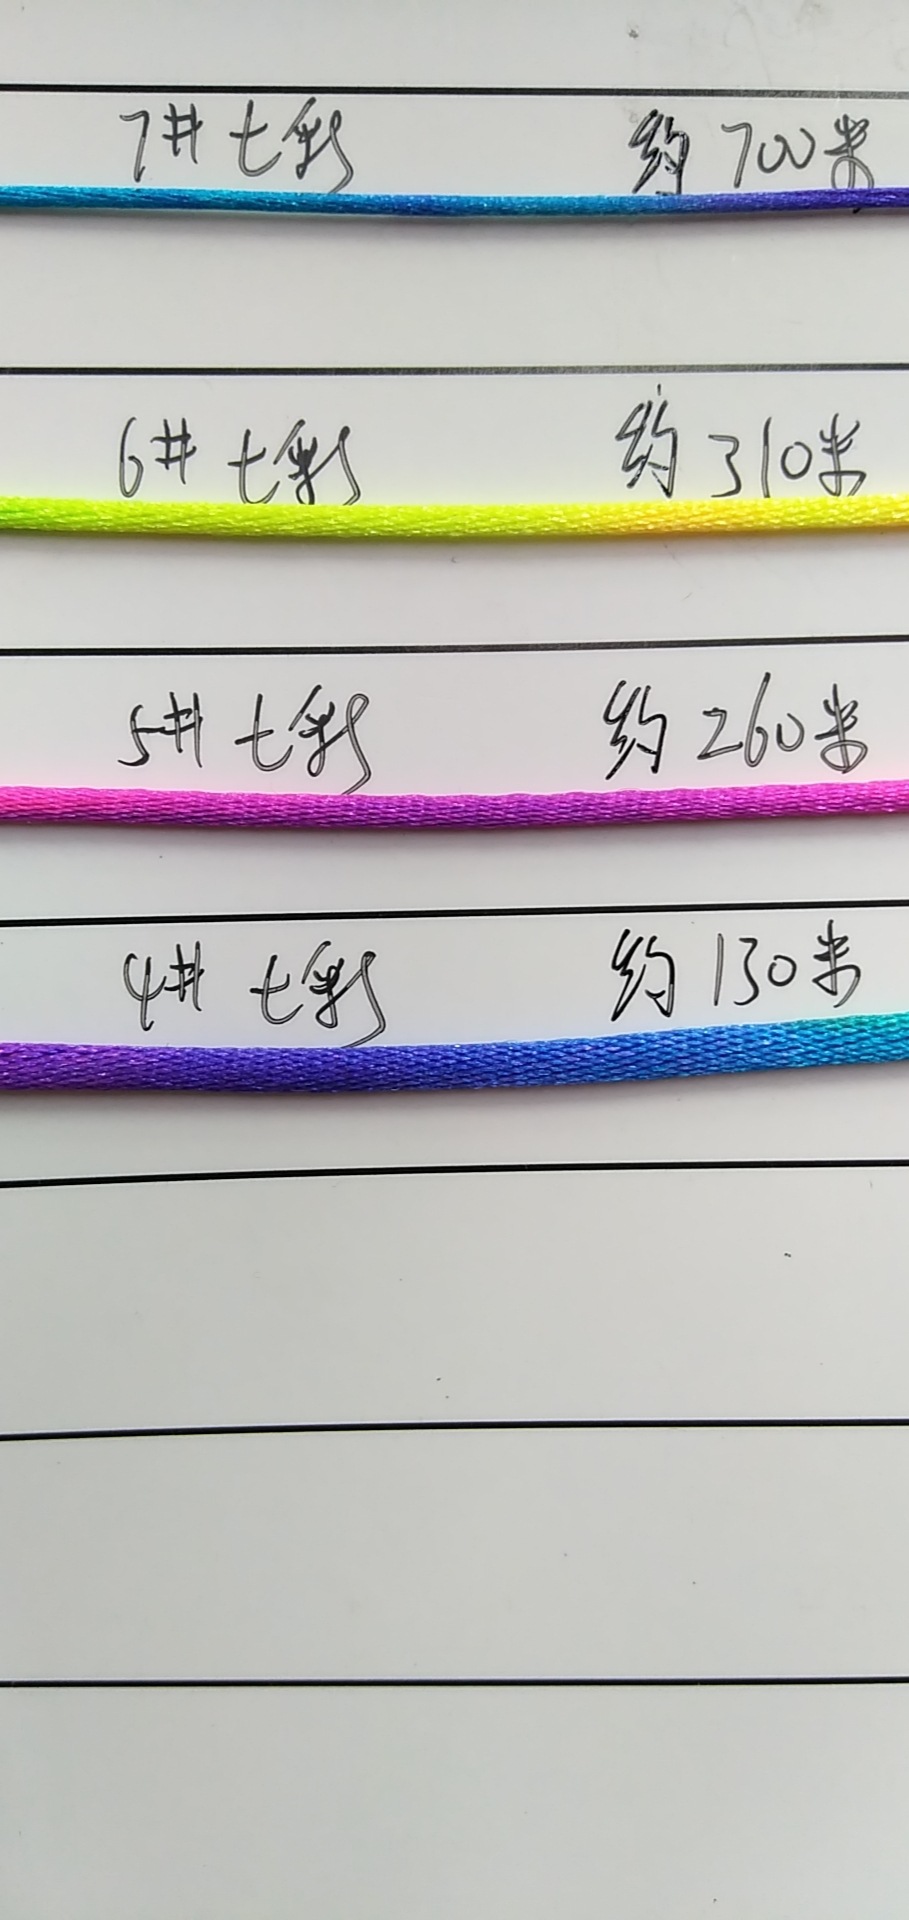 7# 七彩 约700米
6# 七彩 约310米
5# 七彩 约260米
4# 七彩 约130米